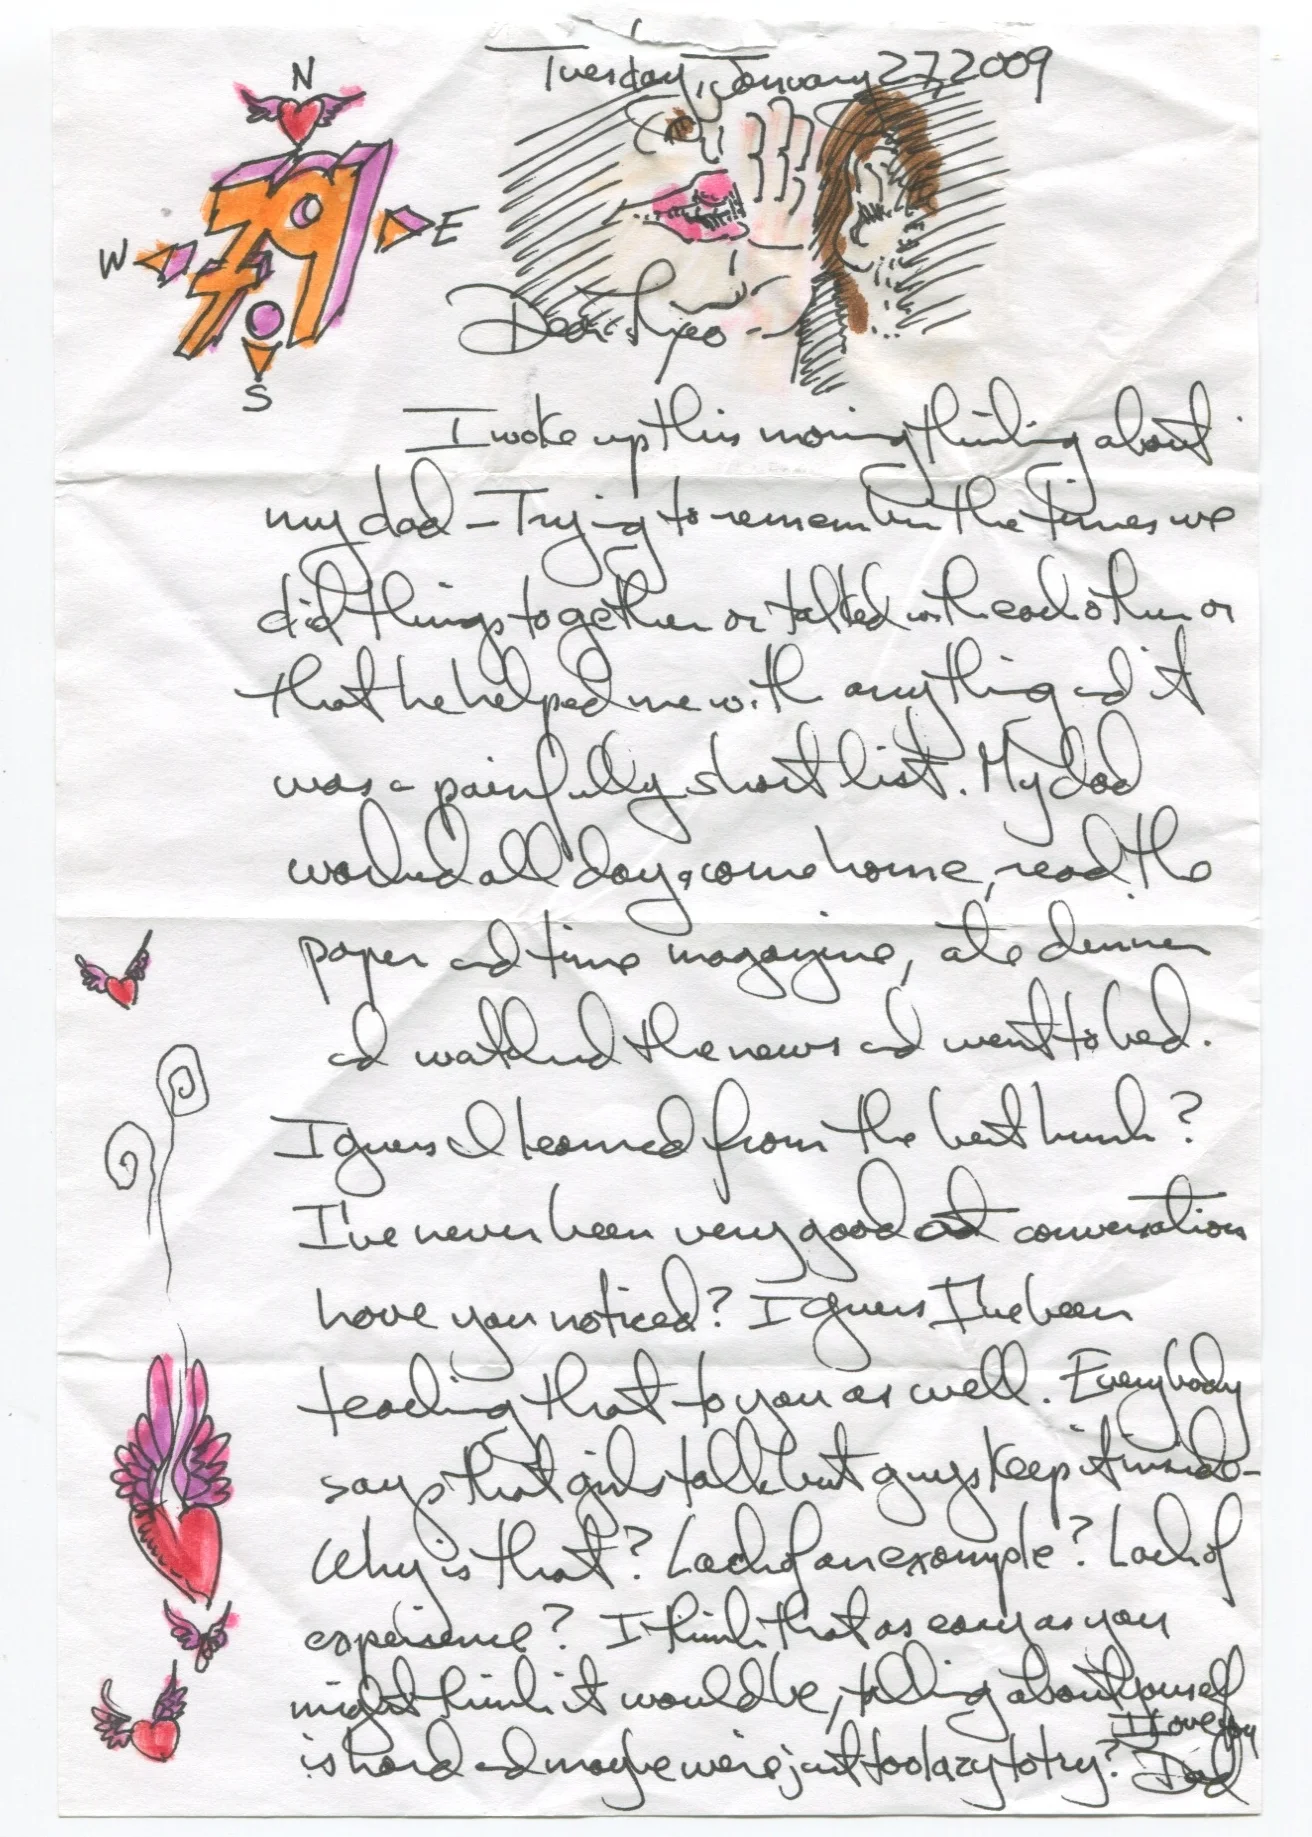 Tuesday, January 27, 2009
N
W 79 E
S
Dear Theo -
I woke up this morning thinking about
my dad - Trying to remember the times we
did things together or talked with each other or
that he helped me with anything and it
was a painfully short list. My dad
worked all day, come home, read the
paper and time magazine, ate dinner
and watched the news and went to bed.
I guess I learned from the best hunh?
I've never been very good at conversation
have you noticed? I guess I've been
teaching that to you as well. Everybody
says that girls talk but guys keep it inside -
Why is that? Lack of an example? Lack of
experience? I think that as easy as you
might think it would be, talking about yourself
is hard and maybe we're just too lazy to try?
I love you
Dad